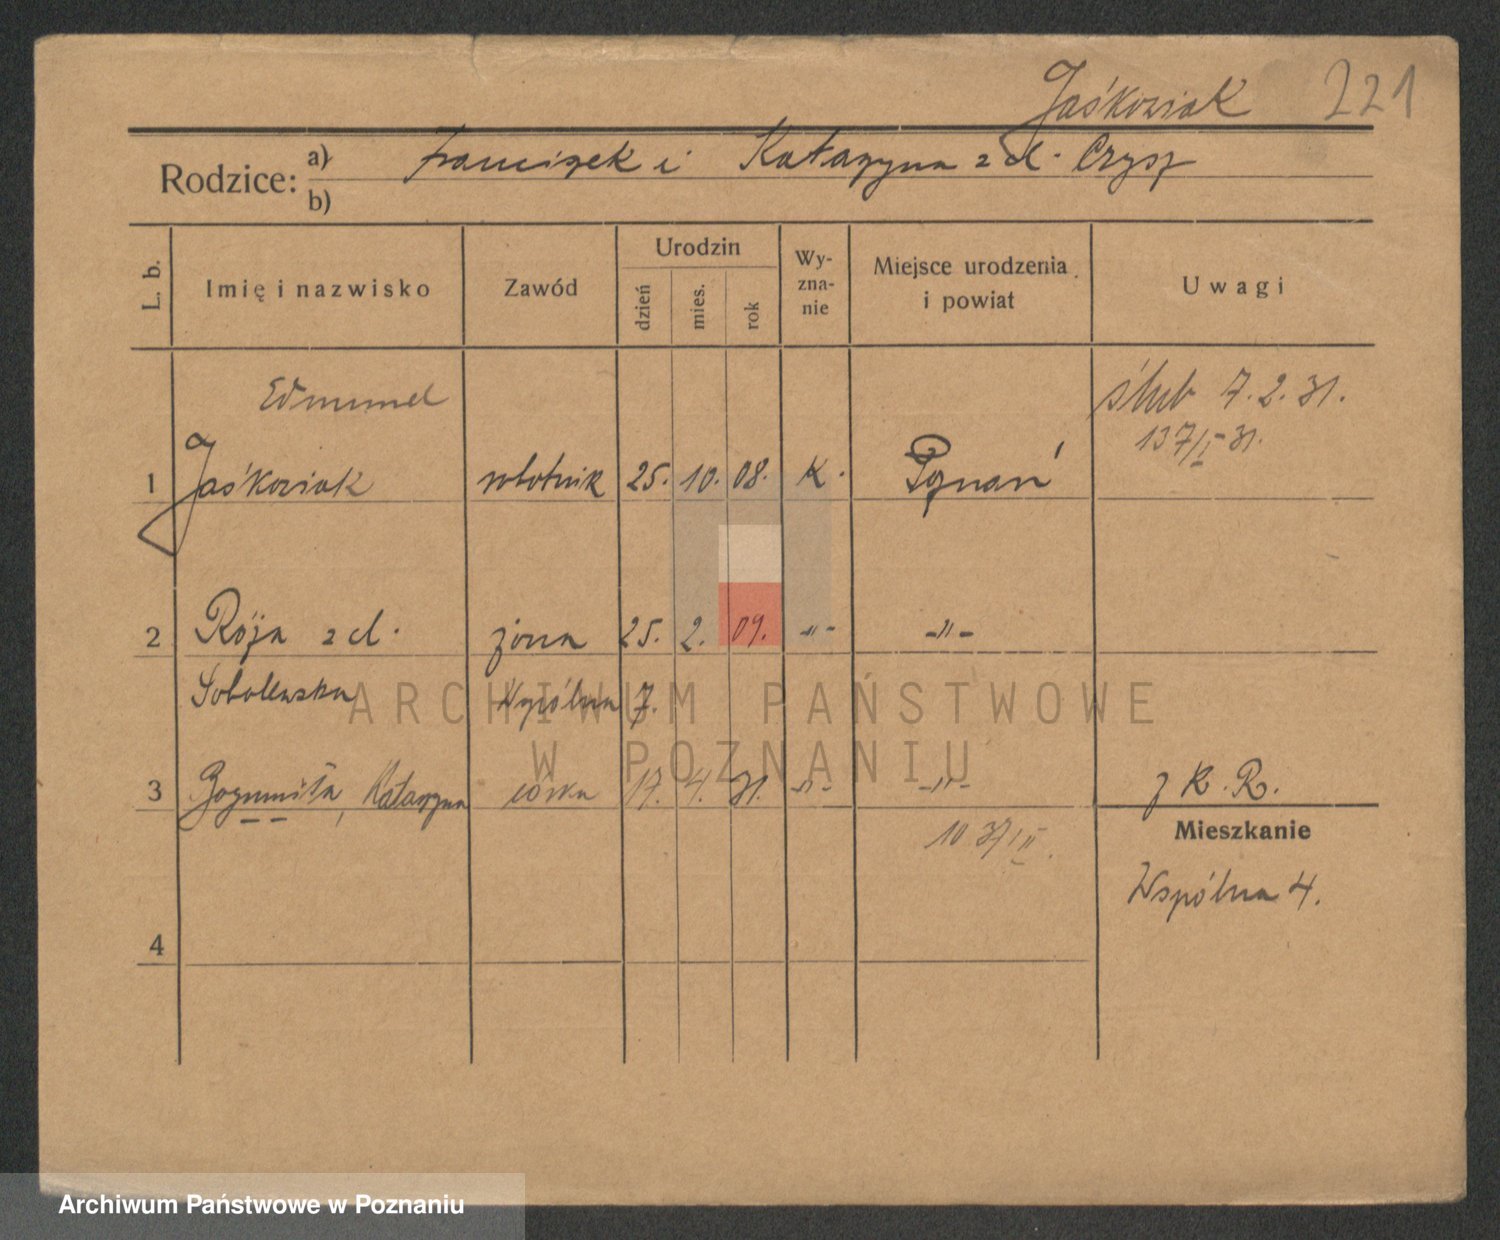 Jaśkowiak 221
Rodzice: a) Franciszek i Katarzyna z d. Czysz
b)
L. b. Imię i nazwisko Zawód Urodzin dzień mies. rok Wy-zna-nie Miejsce urodzenia i powiat Uwagi
Edmund ślub 7.2.31.
137/I-31.
1 Jaśkowiak robotnik 25. 10. 08. K. Poznań
2 Róża z d. żona 25. 2. 09. -"- -"-
Sobolewska Wspólna 7.
3 Bogumiła, Katarzyna córka 17. 4. 31. -"- -"- z K. R.
Mieszkanie
Wspólna 4.
4
ARCHIWUM PAŃSTWOWE
W POZNANIU
Archiwum Państwowe w Poznaniu